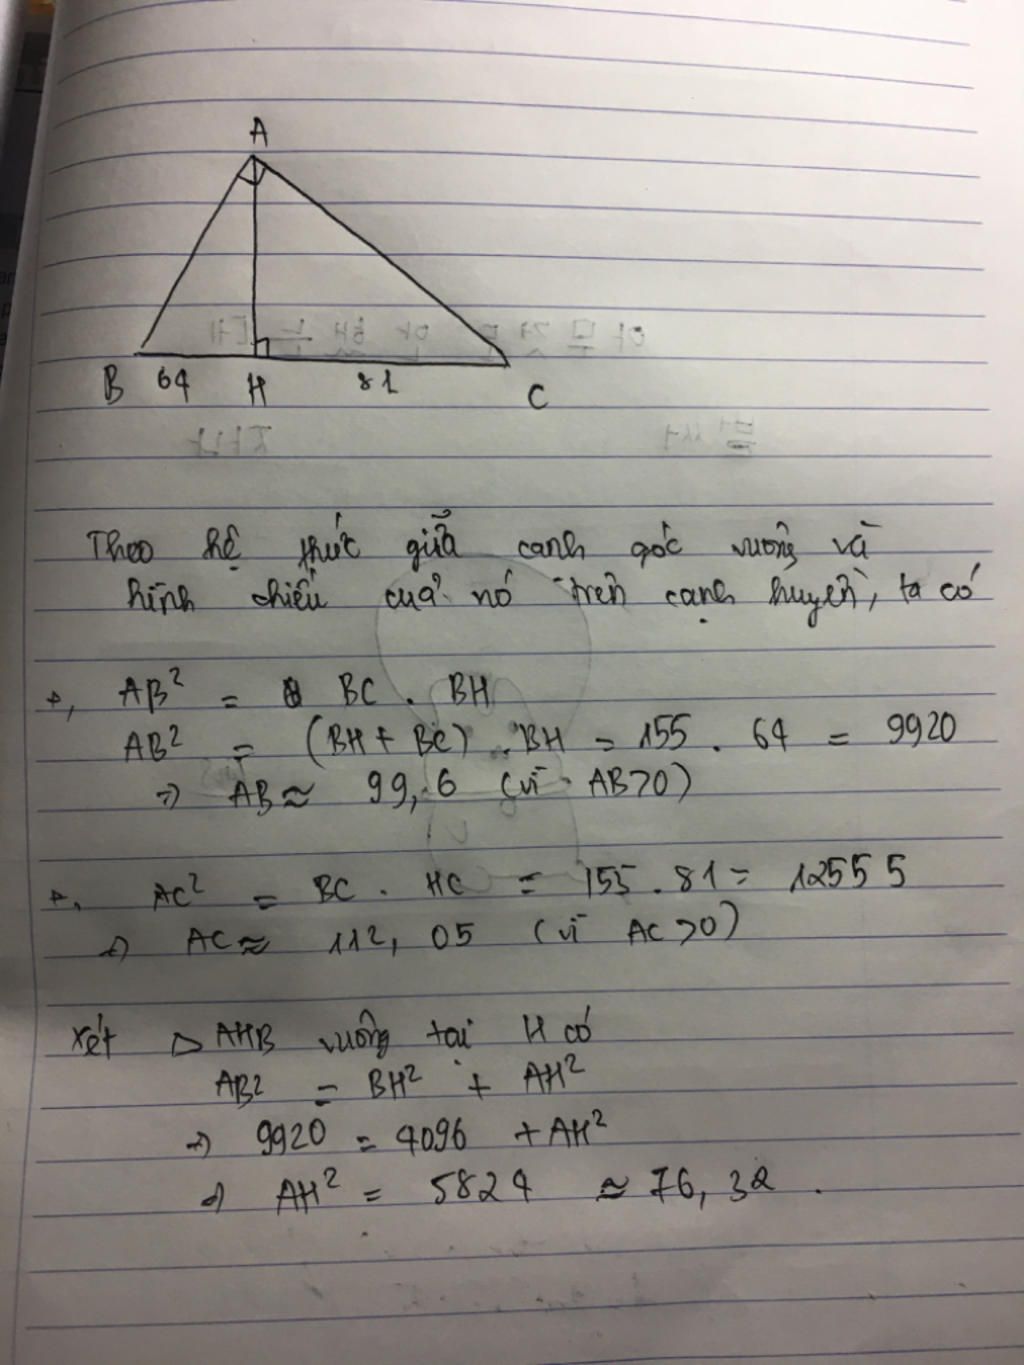 A
B 64 H 81 C
Theo hệ thức giữa canh góc vuông và
hình chiếu của nó trên cạnh huyền, ta có
+, AB² = BC . BH
AB² = (BH + BC) . BH = 155 . 64 = 9920
=> AB ≈ 99,6 (vì AB>0)
+, AC² = BC . HC = 155 . 81 = 12555
=> AC ≈ 112,05 (vì AC>0)
Xét △ AHB vuông tại H có
AB² = BH² + AH²
=> 9920 = 4096 + AH²
=> AH² = 5824 ≈ 76,32 .